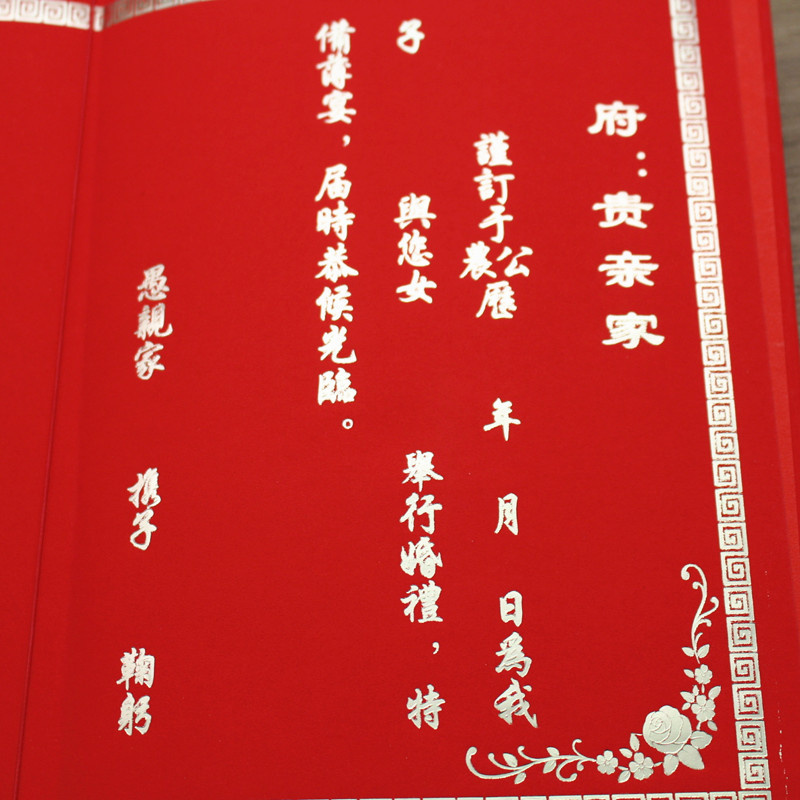 府：贵亲家
謹訂于公農歷 年 月 日為我
子 與您女 舉行婚禮，特
備薄宴，届時恭候光臨。
愚親家 携子 鞠躬